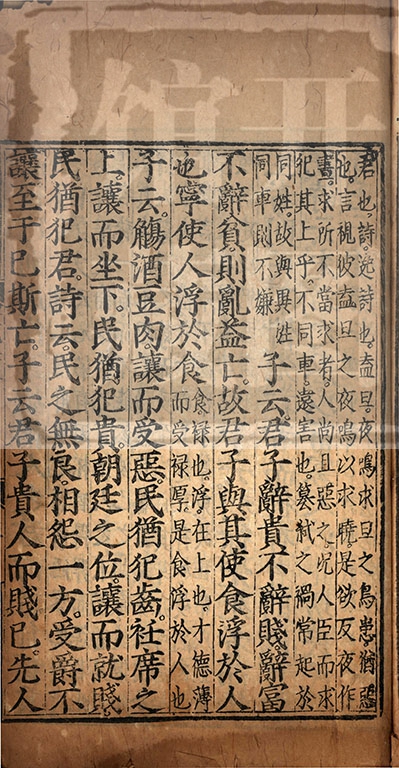 君也詩逸詩也盍旦夜鳴求旦之鳥患猶惡
也言視彼盍旦之夜鳴以求曉是欲反夜作
晝求所不當求者人尚且惡之况人臣而求
犯其上乎不同車遠害也篡弑之禍常起於
同姓故與異姓
同車則不嫌
子云君子辭貴不辭賤辭富
不辭貧則亂益亡故君子與其使食浮於人
也寧使人浮於食
食禄也浮在上也才德薄
而受禄厚是食浮於人也
子云觴酒豆肉讓而受惡民猶犯齒衽席之
上讓而坐下民猶犯貴朝廷之位讓而就賤
民猶犯君詩云民之無良相怨一方受爵不
讓至于已斯亡子云君子貴人而賤已先人